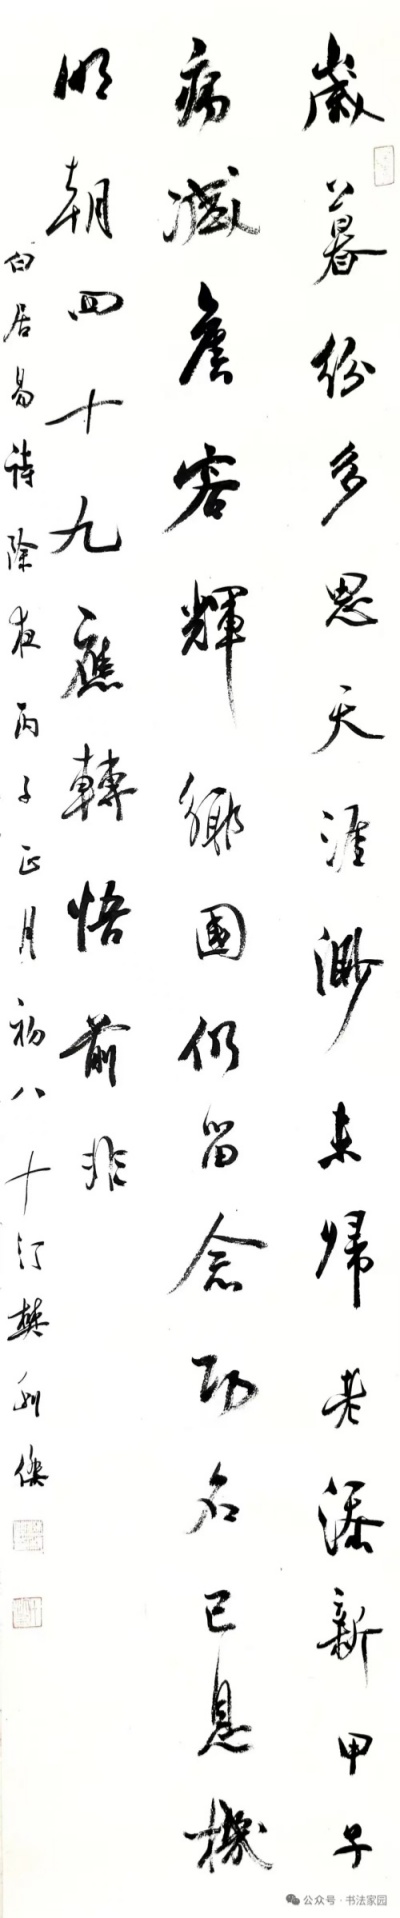 歲暮紛多思天涯渺未歸老添新甲子
病減舊容輝鄉國仍留念功名已息機
明朝四十九應轉悟前非
白居易詩除夜丙子正月初八十汀樊利傑
公众号·书法家园